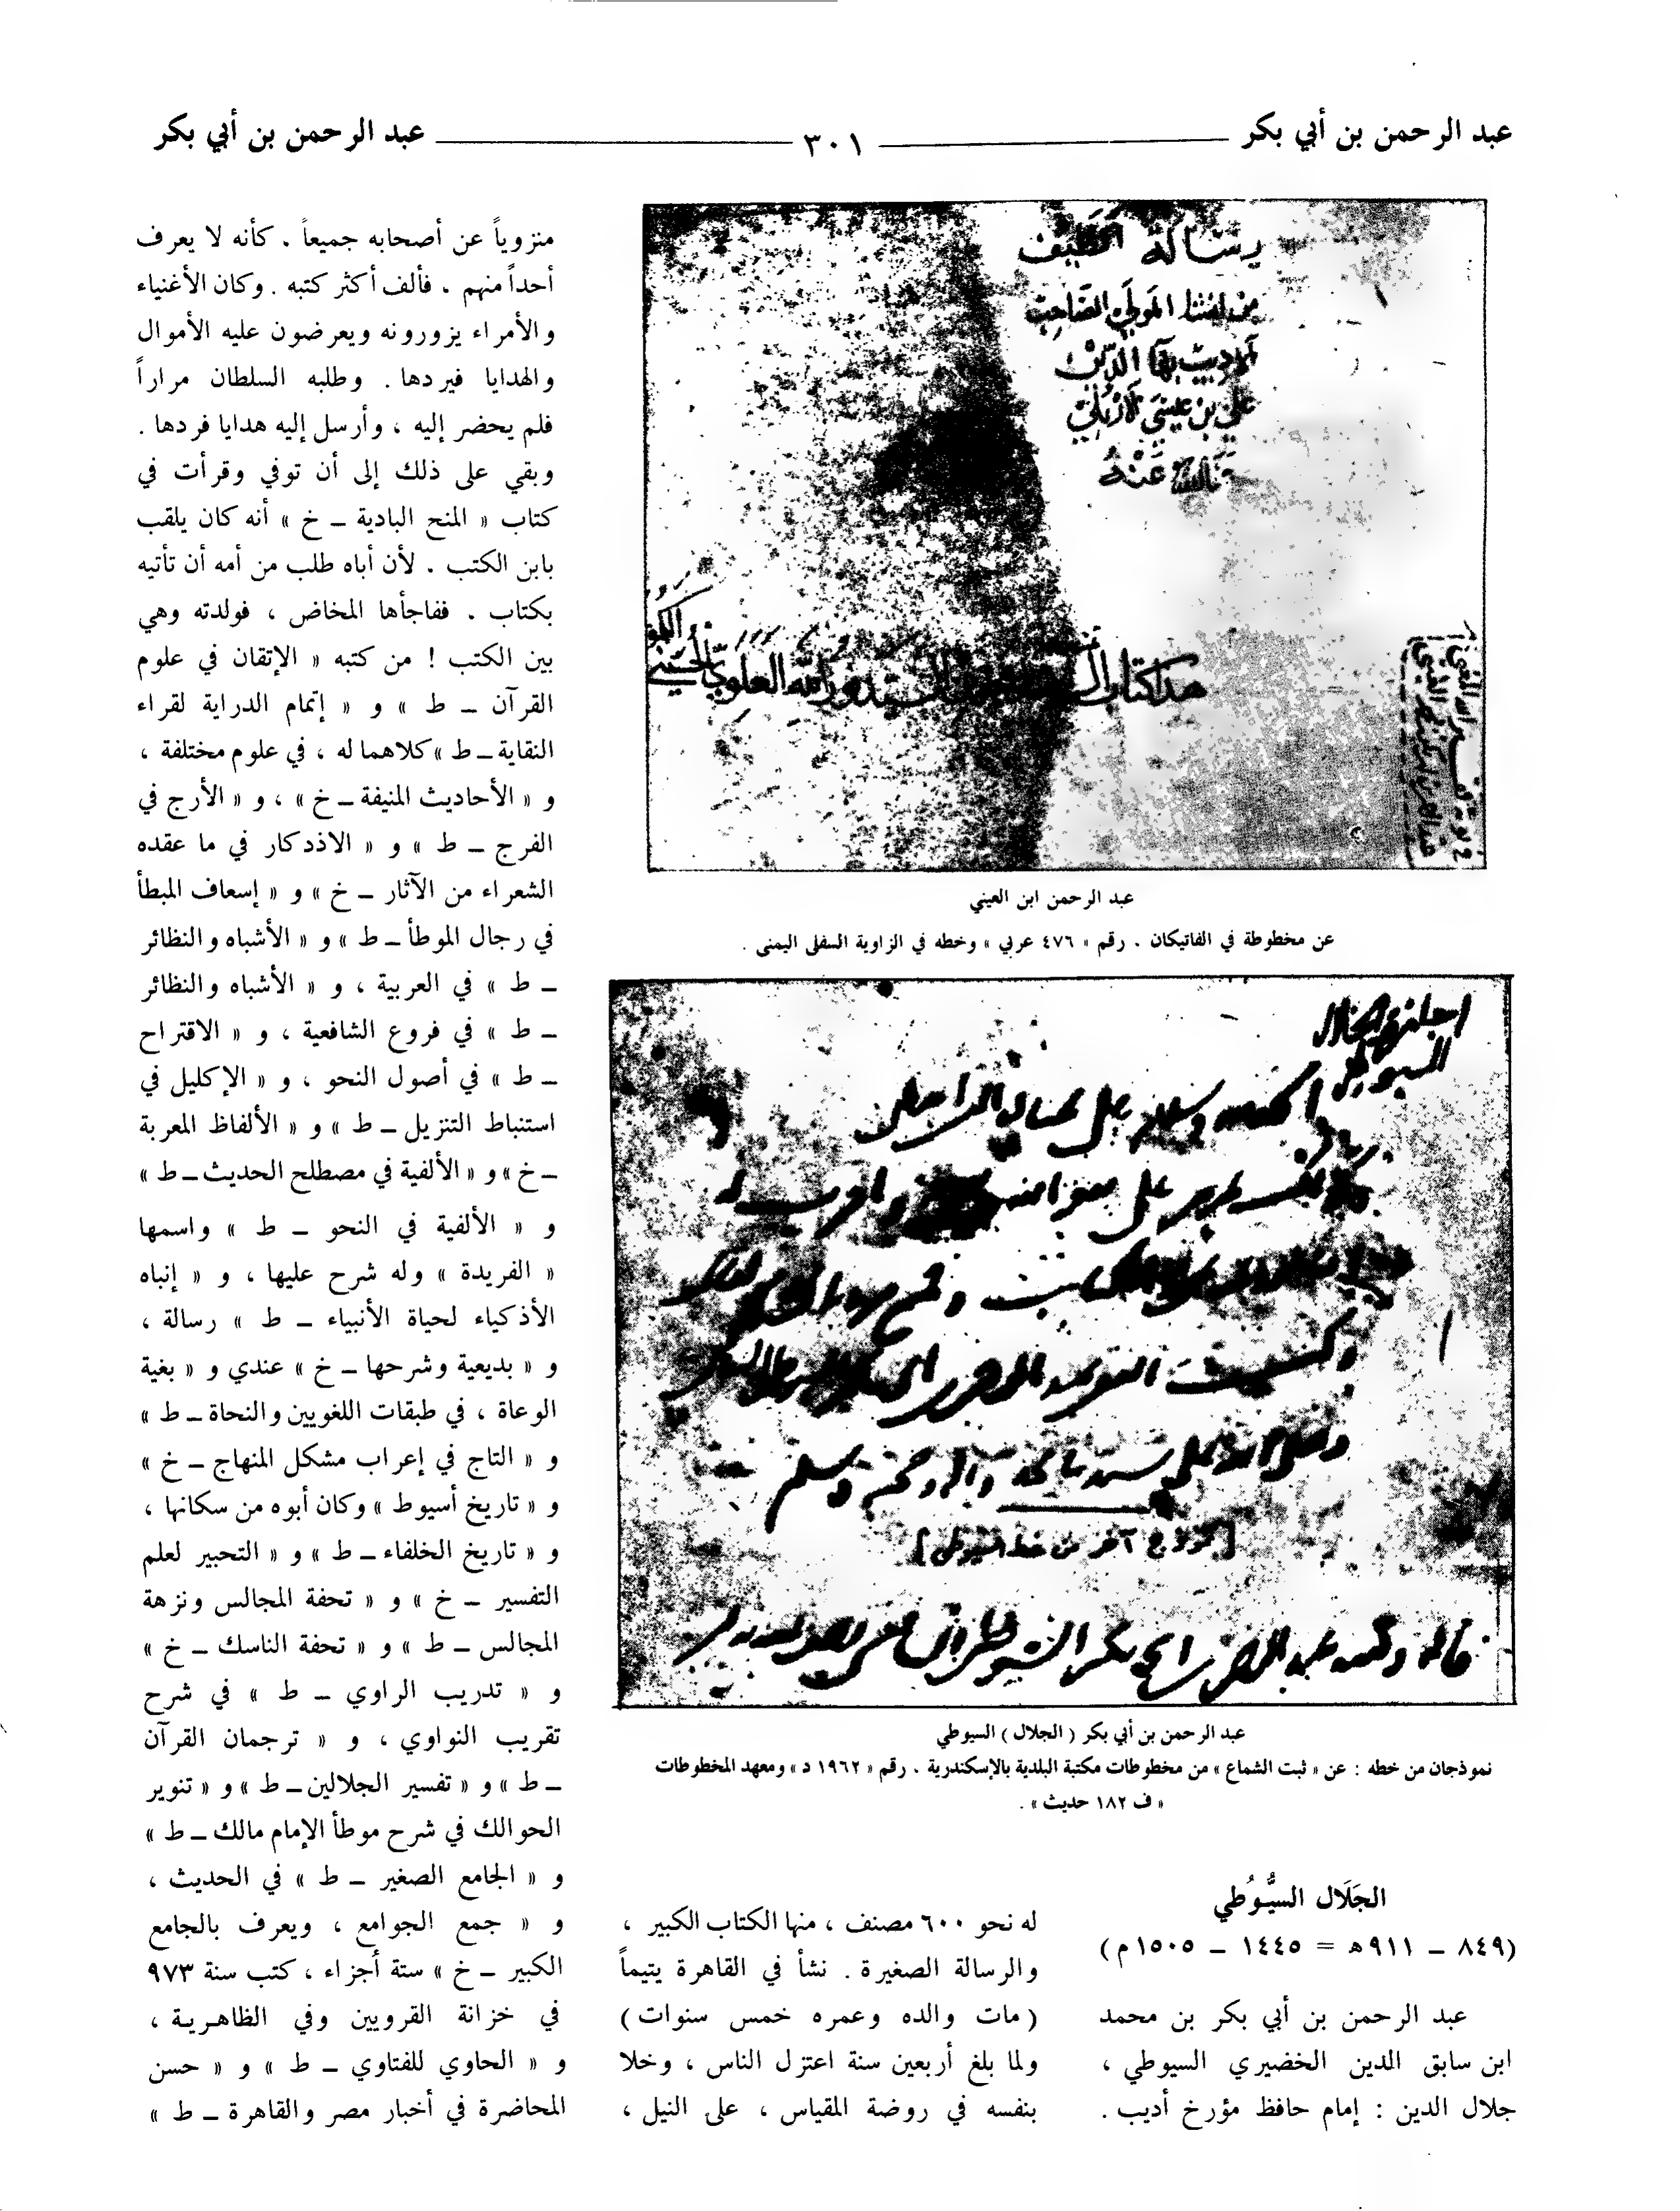 عبد الرحمن بن أبي بكر
٣٠١
عبد الرحمن بن أبي بكر
رسالة الطيف
من إنشا المولى الصاحب
بهاء الدين
علي بن عيسى الإربلي
عنه
هذا كتاب
عبد الرحمن ابن العيني
عن مخطوطة في الفاتيكان . رقم « ٤٧٦ عربي » وخطه في الزاوية السفلى اليمنى .
السيوطي
وصلى الله على سيدنا محمد وآله وصحبه وسلم
[ نموذج آخر من خط السيوطي ]
عبد الرحمن بن أبي بكر ( الجلال ) السيوطي
نموذجان من خطه : عن « ثبت الشماع » من مخطوطات مكتبة البلدية بالإسكندرية . رقم « ١٩٦٢ د » ومعهد المخطوطات
« ف ١٨٢ حديث » .
الجَلَال السيُّوُطي
(٨٤٩ ــ ٩١١ه = ١٤٤٥ ــ ١٥٠٥م)
عبد الرحمن بن أبي بكر بن محمد
ابن سابق الدين الخضيري السيوطي ،
جلال الدين : إمام حافظ مؤرخ أديب .
له نحو ٦٠٠ مصنف ، منها الكتاب الكبير ،
والرسالة الصغيرة . نشأ في القاهرة يتيماً
( مات والده وعمره خمس سنوات )
ولما بلغ أربعين سنة اعتزل الناس ، وخلا
بنفسه في روضة المقياس ، على النيل ،
منزوياً عن أصحابه جميعاً . كأنه لا يعرف
أحداً منهم . فألف أكثر كتبه . وكان الأغنياء
والأمراء يزورونه ويعرضون عليه الأموال
والهدايا فيردها . وطلبه السلطان مراراً
فلم يحضر إليه ، وأرسل إليه هدايا فردها .
وبقي على ذلك إلى أن توفي وقرأت في
كتاب « المنح البادية ــ خ » أنه كان يلقب
بابن الكتب . لأن أباه طلب من أمه أن تأتيه
بكتاب . ففاجأها المخاض ، فولدته وهي
بين الكتب ! من كتبه « الإتقان في علوم
القرآن ــ ط » و « إتمام الدراية لقراء
النقاية ــ ط » كلاهما له ، في علوم مختلفة ،
و « الأحاديث المنيفة ــ خ » ، و « الأرج في
الفرج ــ ط » و « الاذدكار في ما عقده
الشعراء من الآثار ــ خ » و « إسعاف المبطأ
في رجال الموطأ ــ ط » و « الأشباه والنظائر
ــ ط » في العربية ، و « الأشباه والنظائر
ــ ط » في فروع الشافعية ، و « الاقتراح
ــ ط » في أصول النحو ، و « الإكليل في
استنباط التنزيل ــ ط » و « الألفاظ المعربة
ــ خ » و « الألفية في مصطلح الحديث ــ ط »
و « الألفية في النحو ــ ط » واسمها
« الفريدة » وله شرح عليها ، و « إنباه
الأذكياء لحياة الأنبياء ــ ط » رسالة ،
و « بديعية وشرحها ــ خ » عندي و « بغية
الوعاة ، في طبقات اللغويين والنحاة ــ ط »
و « التاج في إعراب مشكل المنهاج ــ خ »
و « تاريخ أسيوط » وكان أبوه من سكانها ،
و « تاريخ الخلفاء ــ ط » و « التحبير لعلم
التفسير ــ خ » و « تحفة المجالس ونزهة
المجالس ــ ط » و « تحفة الناسك ــ خ »
و « تدريب الراوي ــ ط » في شرح
تقريب النواوي ، و « ترجمان القرآن
ــ ط » و « تفسير الجلالين ــ ط » و « تنوير
الحوالك في شرح موطأ الإمام مالك ــ ط »
و « الجامع الصغير ــ ط » في الحديث ،
و « جمع الجوامع ، ويعرف بالجامع
الكبير ــ خ » ستة أجزاء ، كتب سنة ٩٧٣
في خزانة القرويين وفي الظاهرية ،
و « الحاوي للفتاوي ــ ط » و « حسن
المحاضرة في أخبار مصر والقاهرة ــ ط »